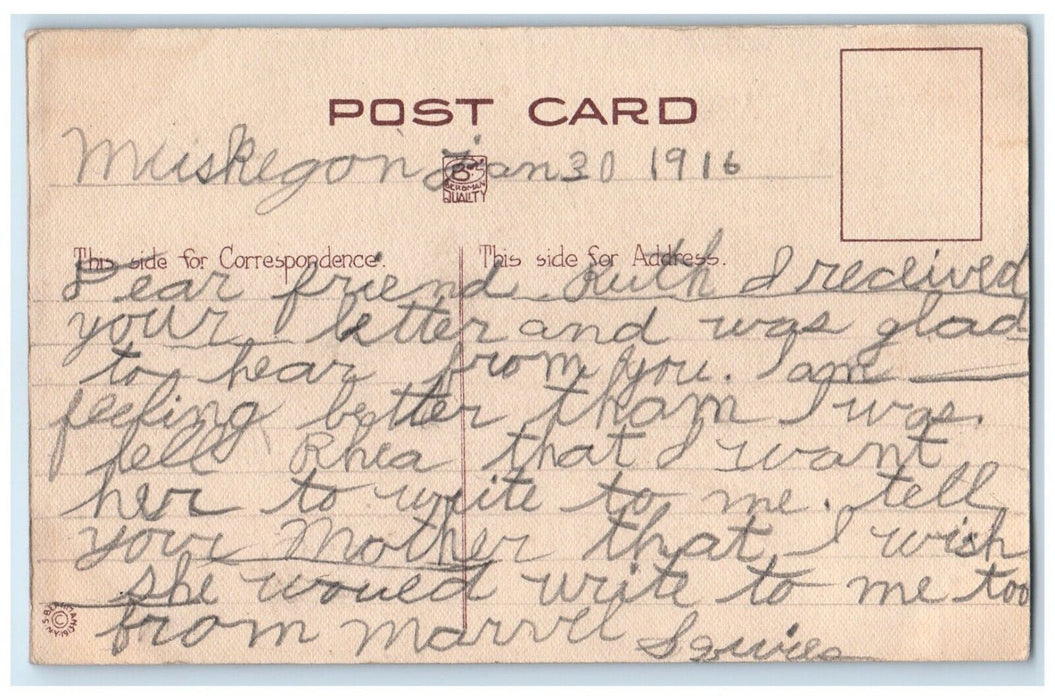 POST CARD
Muskegon Jan 30 1916
BERGMAN
QUALITY
This side for Correspondence.
This side for Address.
Dear friend Ruth I received
your letter and was glad
to hear from you. I am
feeling better tham I was.
tell Rhea that I want
her to write to me. tell
your Mother that I wish
she would write to me too
from Marvel Squires
S. BERGMAN © N.Y. 1913